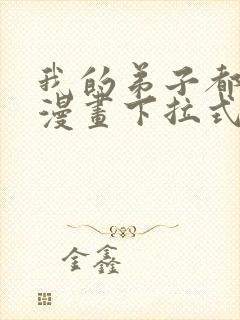 我的弟子都
漫畫下拉式
金鑫